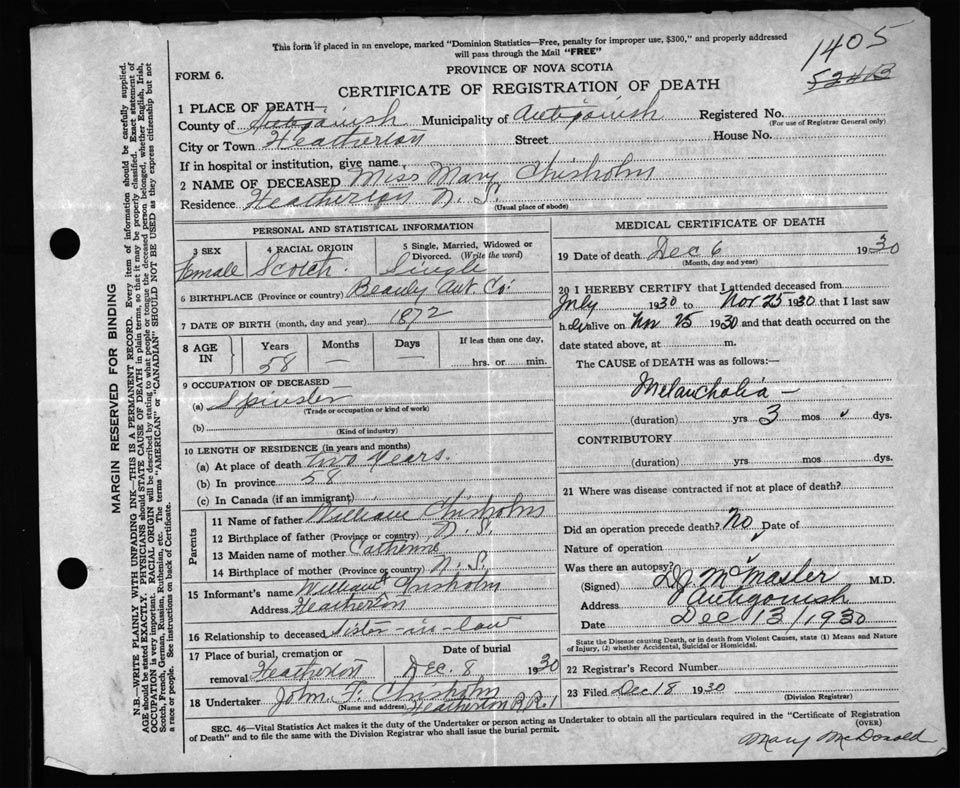 This form if placed in an envelope, marked "Dominion Statistics—Free, penalty for improper use, $300," and properly addressed
will pass through the Mail "FREE"
1405
FORM 6.
PROVINCE OF NOVA SCOTIA
CERTIFICATE OF REGISTRATION OF DEATH
MARGIN RESERVED FOR BINDING
N.B.—WRITE PLAINLY WITH UNFADING INK—THIS IS A PERMANENT RECORD. Every item of information should be carefully supplied.
AGE should be stated EXACTLY. PHYSICIANS should STATE CAUSE OF DEATH in plain terms, so that it may be properly classified. Exact statement of
OCCUPATION is very important. RACIAL ORIGIN will be described by stating to what people or tongue the deceased person belonged, whether English, Irish,
Scotch, French, German, Russian, Ruthenian, etc. The terms "AMERICAN" or "CANADIAN" SHOULD NOT BE USED as they express citizenship but not
a race or people. See instructions on back of Certificate.
1 PLACE OF DEATH—
County of Antigonish Municipality of Antigonish Registered No.
(For use of Registrar General only)
City or Town Heatherton Street House No.
If in hospital or institution, give name
2 NAME OF DECEASED Miss Mary Chisholm
Residence Heatherton N. S.
(Usual place of abode)
PERSONAL AND STATISTICAL INFORMATION
3 SEX
Female
4 RACIAL ORIGIN
Scotch.
5 Single, Married, Widowed or
Divorced. (Write the word)
Single
6 BIRTHPLACE (Province or country) Beauly Ant. Co.
7 DATE OF BIRTH (month, day and year) 1872
8 AGE
IN
Years
58
Months
—
Days
—
If less than one day,
hrs. or min.
9 OCCUPATION OF DECEASED
(a) Spinster
(Trade or occupation or kind of work)
(b)
(Kind of industry)
10 LENGTH OF RESIDENCE (in years and months)
(a) At place of death two years.
(b) In province 58
(c) In Canada (if an immigrant)
Parents
11 Name of father William Chisholm
12 Birthplace of father (Province or country) N. S.
13 Maiden name of mother Catherine
14 Birthplace of mother (Province or country) N. S.
15 Informant's name William Chisholm
Address Heatherton
16 Relationship to deceased Sister-in-law
17 Place of burial, cremation or
removal Heatherton
Date of burial
Dec. 8 1930
18 Undertaker John F. Chisholm
(Name and address) Heatherton R.R. 1
MEDICAL CERTIFICATE OF DEATH
19 Date of death Dec 6 1930
(Month, day and year)
20 I HEREBY CERTIFY that I attended deceased from
July 1930 to Nov 25 1930 that I last saw
her alive on Nov 25 1930 and that death occurred on the
date stated above, at m.
The CAUSE OF DEATH was as follows:—
Melancholia —
(duration) yrs 3 mos dys.
CONTRIBUTORY
(duration) yrs mos dys.
21 Where was disease contracted if not at place of death?
Did an operation precede death? No Date of
Nature of operation
Was there an autopsy?
(Signed) McMaster M.D.
Address Antigonish
Date Dec 13/1930
State the Disease causing Death, or in death from Violent Causes, state (1) Means and Nature
of Injury, (2) whether Accidental, Suicidal or Homicidal.
22 Registrar's Record Number
23 Filed Dec 18 1930
(Division Registrar)
SEC. 46—Vital Statistics Act makes it the duty of the Undertaker or person acting as Undertaker to obtain all the particulars required in the "Certificate of Registration
of Death" and to file the same with the Division Registrar who shall issue the burial permit.
(OVER)
Mary McDonald